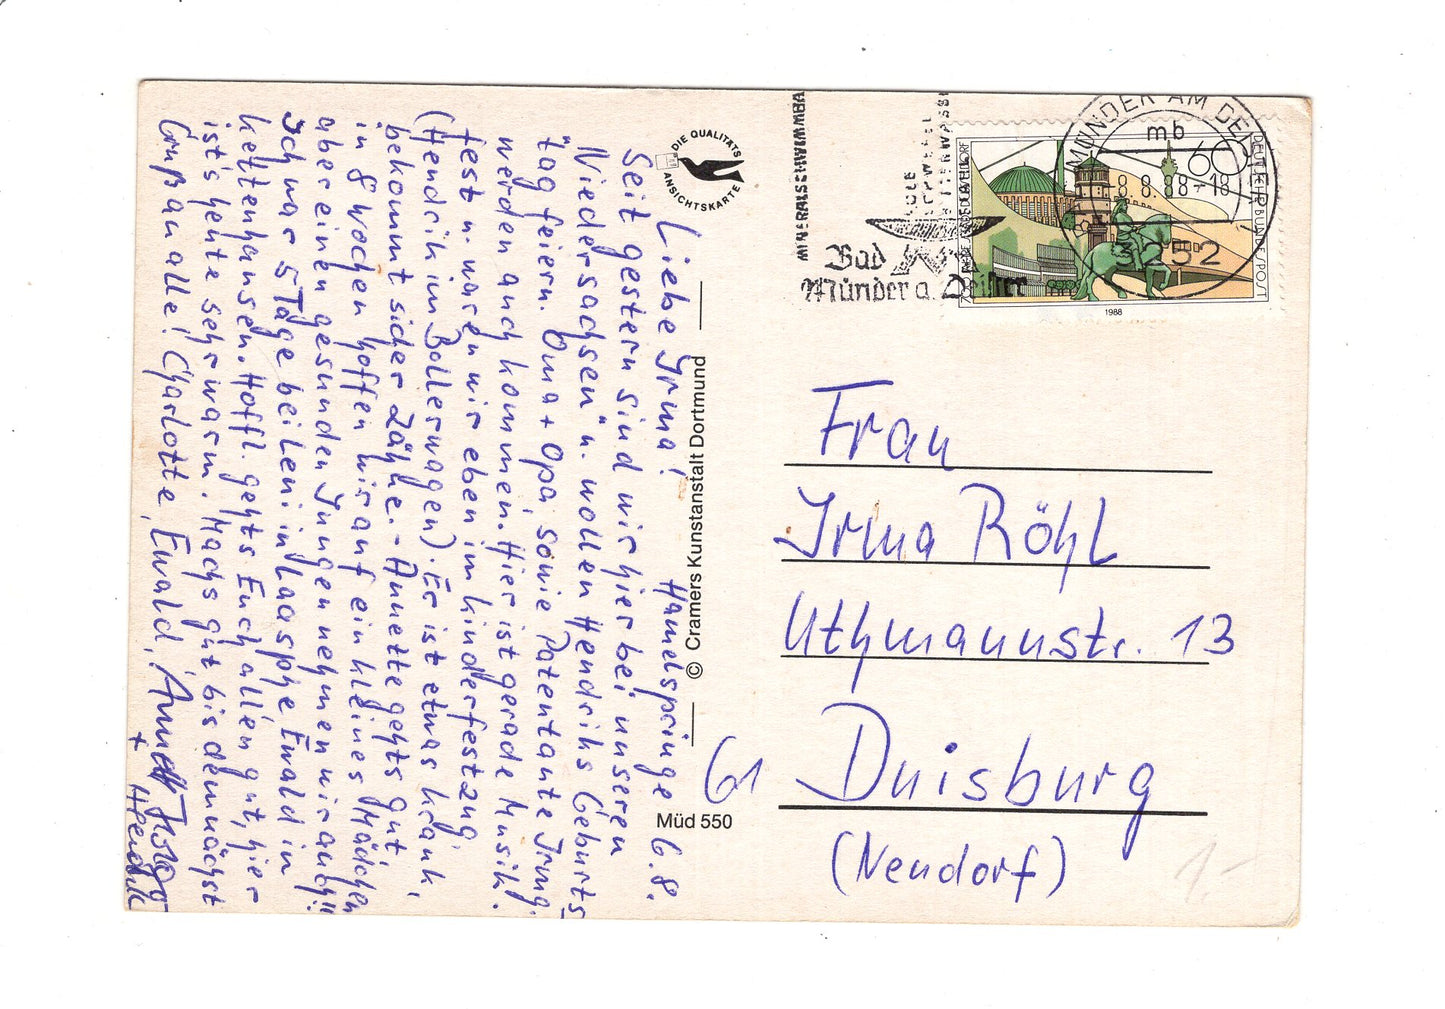 Hamelspringe 6.8.
Liebe Irma!
Seit gestern sind wir hier bei unseren
"Niedersachsen" u. wollen Hendriks Geburts
tag feiern. Oma + Opa sowie Patentante Irmg.
werden auch kommen. Hier ist gerade Musik.
fest u. waren wir eben im Kinderfestzug
(Hendrik im Bollerwagen). Er ist etwas krank,
bekommt sicher Zähne. - Annette gehts gut
in 8 Wochen hoffen wir auf ein kleines Mädchen
aber einen gesunden Jungen nehmen wir auch!!
Ich war 5 Tage bei Leni in Laasphe Ewald in
Kettenhausen. Hoffl. gehts Euch allen gut, hier
ist's heute sehr warm. Machs gut bis demnächst
Gruß an alle! Charlotte, Ewald, Annette
+ Hendrik
DIE QUALITÄTS
ANSICHTSKARTE
© Cramers Kunstanstalt Dortmund
Müd 550
MINERALSCHWIMMBAD
Bad
Münder a. Deister
MÜNDER AM DEISTER
mb
-8.8.88-18
52
60
DEUTSCHE BUNDESPOST
1988
Frau
Irma Röhl
Uthmannstr. 13
61 Duisburg
(Neudorf)
1.-